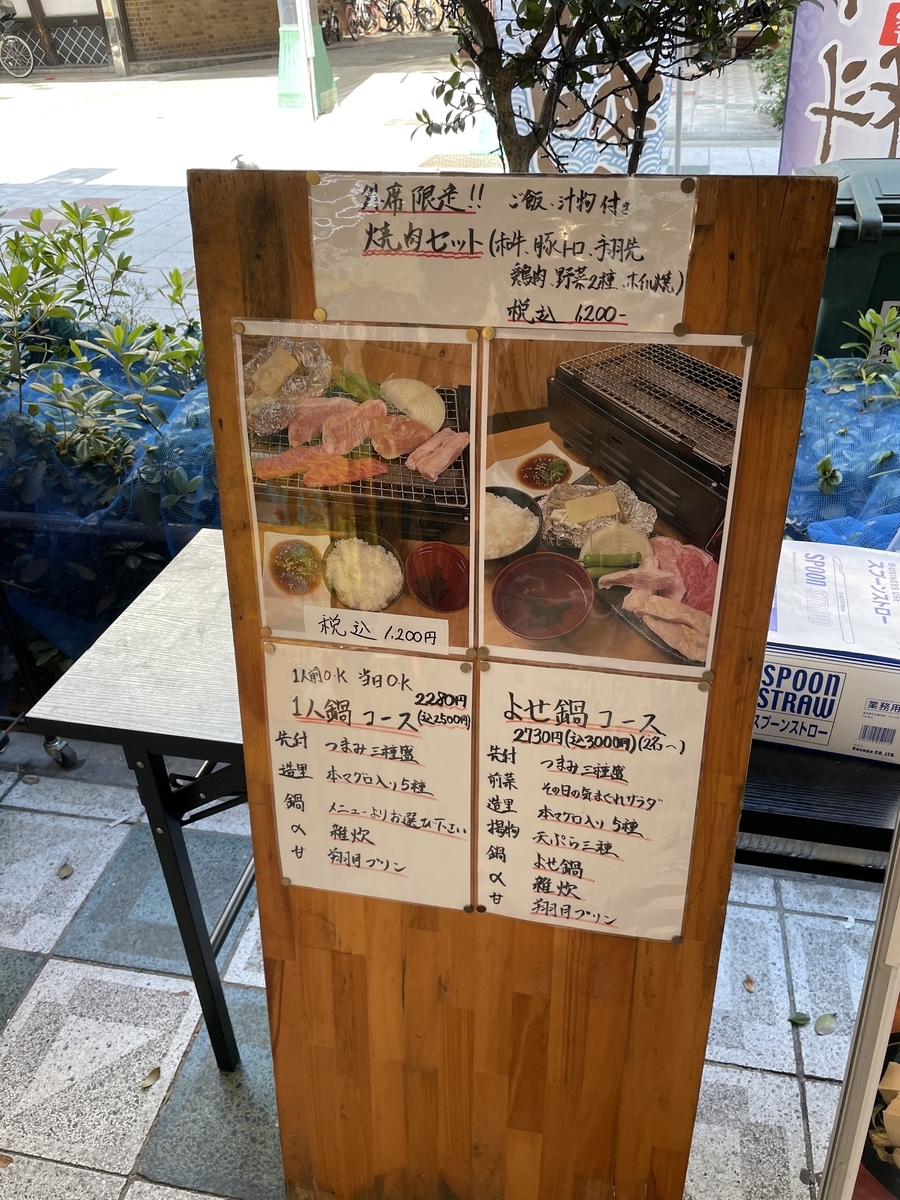 外席限定!! ご飯、汁物付き
焼肉セット(和牛、豚トロ、手羽先
鶏肉、野菜2種、ホイル焼)
税込 1,200-
税込 1,200円
1人前O·K 当日O·K
2280円
1人鍋コース(込2500円)
先付 つまみ三種盛
造里 本マグロ入り5種
鍋 メニューよりお選び下さい
〆 雑炊
甘 翔月プリン
よせ鍋コース
2730円(込3000円)(2名〜)
先付 つまみ三種盛
前菜 その日の気まぐれサラダ
造里 本マグロ入り5種
揚物 天ぷら三種
鍋 よせ鍋
〆 雑炊
甘 翔月プリン
スプーンストロー
BUSINESS USE
SPOON STRAW
SPOON
STRAW
スプーンストロー
業務用